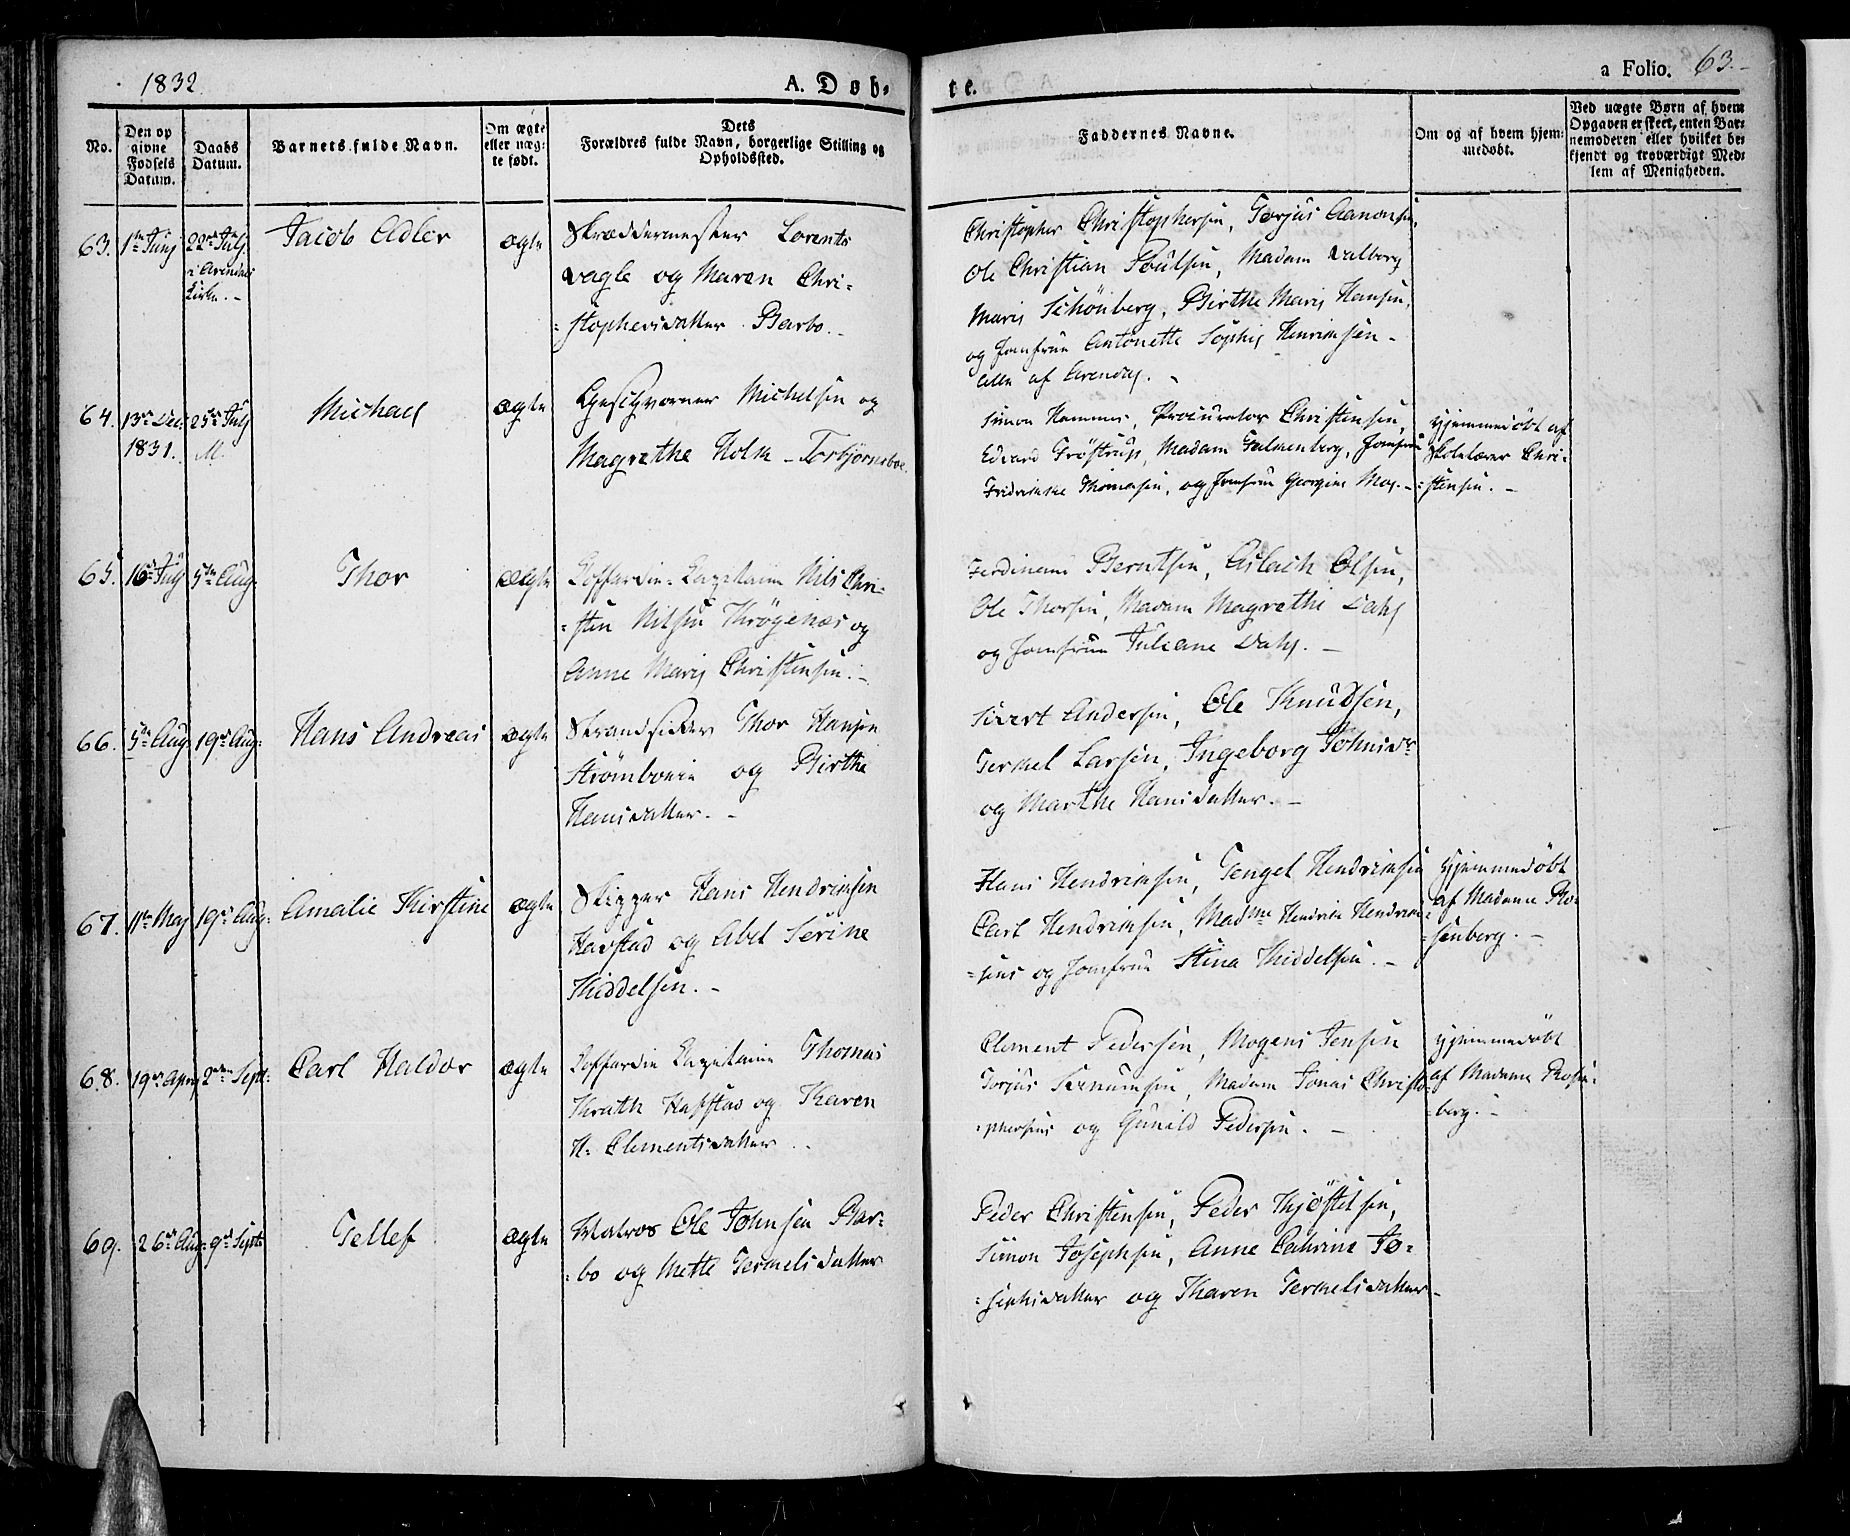 1832.
A. Døb-
te.
a Folio. 63.-
No.
Den op
givne
Fødsels
Datum.
Daabs
Datum.
Barnets fulde Navn.
Om ægte
eller uæg-
te født.
Dets
Forældres fulde Navn, borgerlige Stilling og
Opholdssted.
Faddernes Navne.
Om og af hvem hjem-
medøbt.
Ved uægte Børn af hvem
Opgaven er skeet, enten Bar-
nemoderen eller hvilket be-
kjendt og troværdigt Med-
lem af Menigheden.
63. 1ste Junj 22de July i Arendals Kirke.- Jacob Adler ægte
Skræddermester Lorents
Vagle og Maren Chri-
=stophersdatter Barbo.-
Christopher Christophersen, Torjus Aanonsen,
Ole Christian Poulsen, Madam Valborg
Marie Schönberg, Birthe Marie Hansen,
og Jomfrue Antonette Sophie Henriksen -
alle af Arendal. -
64. 13de Dec. 1831. 25de July M. Michael ægte
Michelsen og
Magrethe Holm - Torbjørnsboe.
Simon Hammer, Procurator Christensen,
Edvard Trøstrup, Madam Falkenberg, Jomfrue
Fridrikke Thomesen, og Jomfrue Georgine Moe. -
Hjemmedøbt af
Skolelærer Chri-
=stensen. -
65. 16de July 5te Aug. Thor ægte
Koffardie-Kapitaine Nils Chri-
=sten Nilsen Krøgenæs og
Anne Marie Christensen. -
Ferdinand Berntsen, Aslach Olsen,
Ole Thorsen, Madam Magrethe Dahl
og Jomfrue Juliane Dahl. -
66. 5te Aug. 19de Aug. Hans Andreas ægte
Strandsidder Thor Hansen
Strømboeie og Birthe
Hansdatter. -
Sivert Andersen, Ole Knudsen,
Terkel Larsen, Ingeborg Johnsdr
og Marthe Hansdatter. -
67. 11te May 19de Aug. Amalie Kirstine ægte
Skipper Hans Hendriksen
Havstad og Abel Serine
Kiddelsen. -
Hans Hendriksen, Tengel Hendriksen
Carl Hendriksen, Madme Hendrik Hendrik-
=sens og Jomfrue Stina Kiddelsen. -
Hjemmedøbt
af Madame Ro-
=senberg. -
68. 19de April 2den Sept. Carl Haldor ægte
Koffardie Kapitaine Thomas
Havstad og Karen
H. Clementsdatter. -
Clement Pedersen, Mogens Jensen
Torjus, Madam Jonas Christo-
=phersens og Gunild Pedersen. -
Hjemmedøbt
af Madame Rosen-
=berg. -
69. 26de Aug. 9de Sept. Tellef ægte
Matros Ole Johnsen Bar-
=bo og Mette Terkelsdatter
Peder Christensen, Peder Kjøstelsen,
Simon Josephsen, Anne Cathrine Jo-
=sephsdatter og Karen Terkelsdatter -